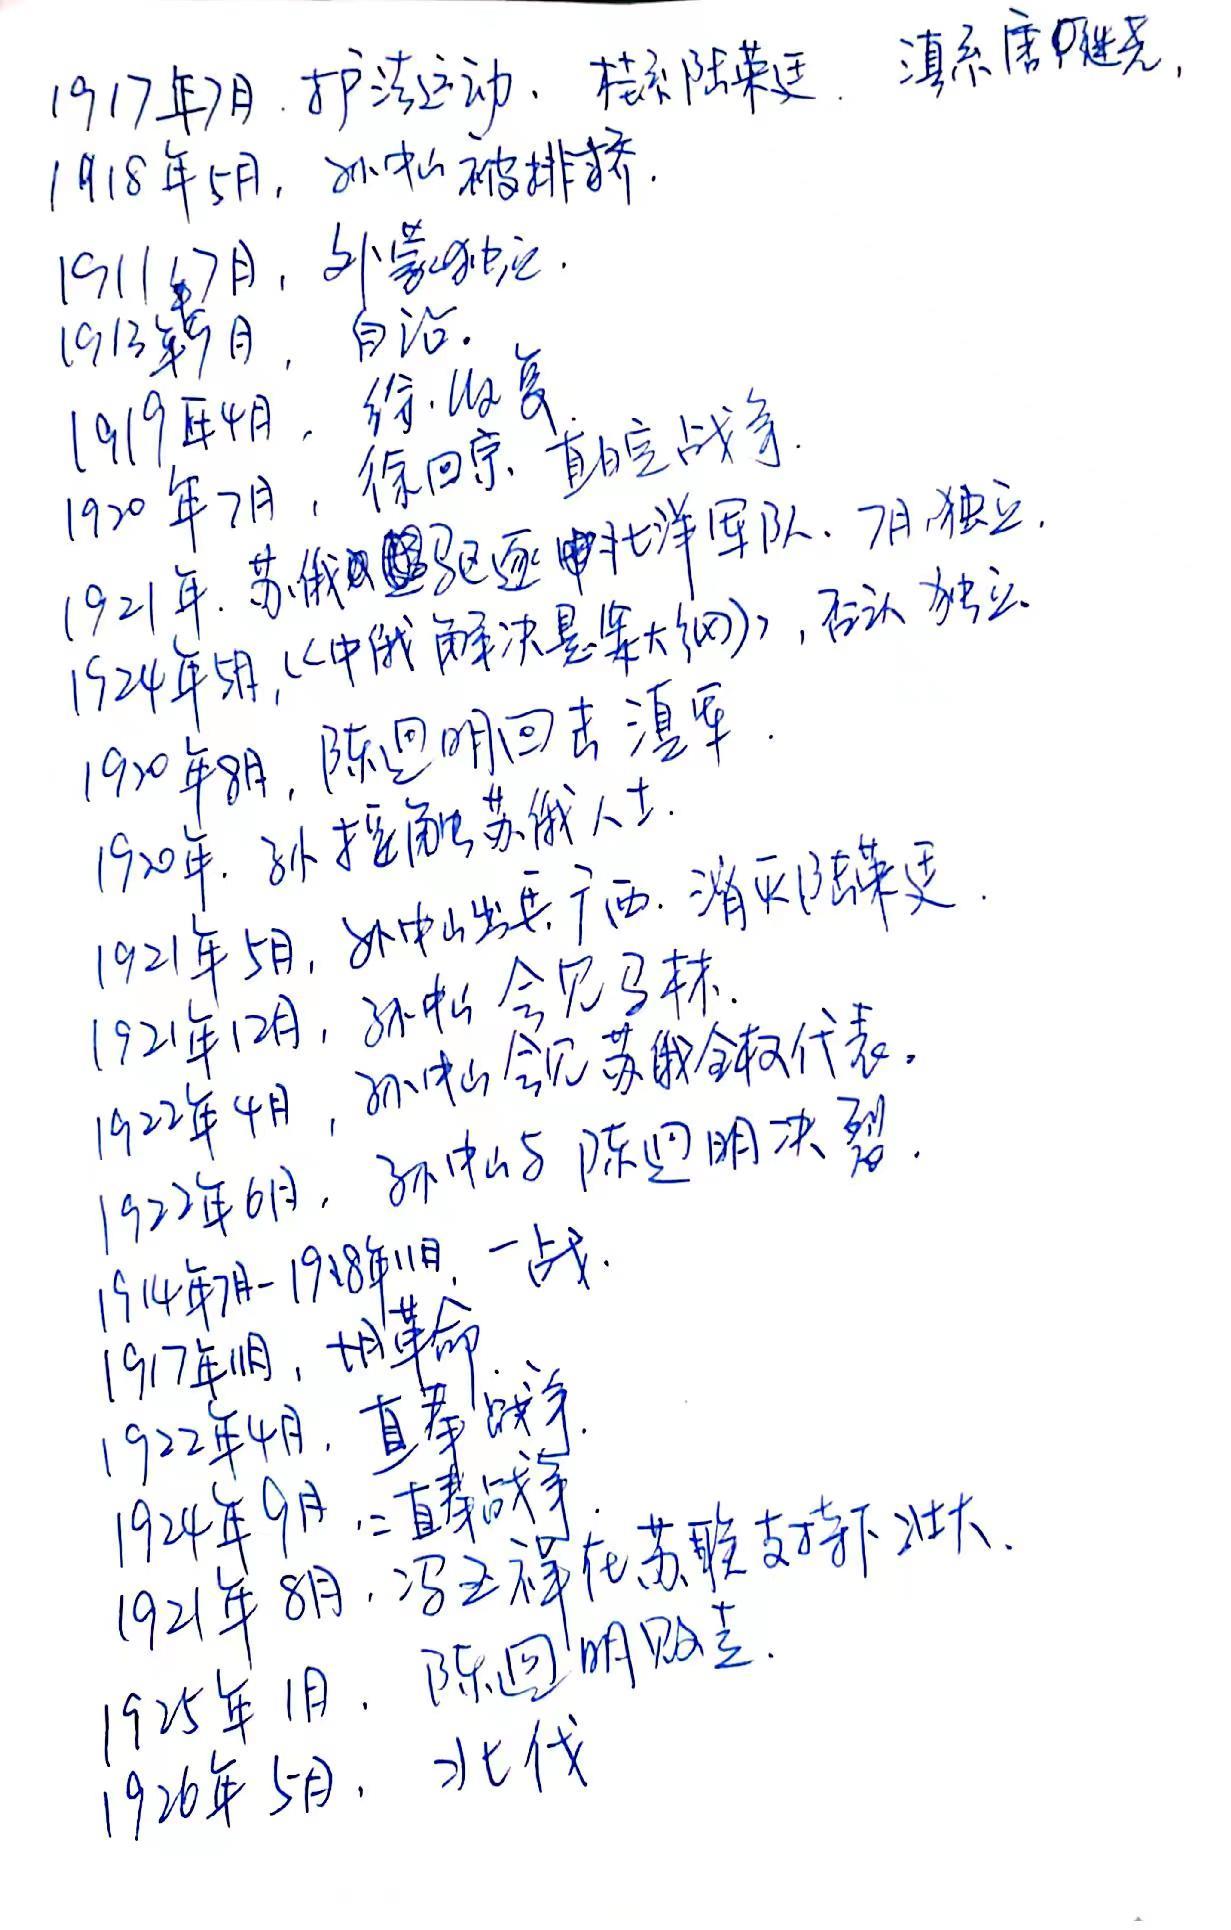 1917年7月.护法运动. 桂系陆荣廷. 滇系唐继尧,
1918年5月, 孙中山被排挤.
1911年7月, 外蒙独立.
1913年9月, 自治.
1919年4月, 徐.收复
1920年7月, 徐回京, 直皖战争.
1921年.苏俄驱逐北洋军队. 7月独立.
1924年5月,《中俄解决悬案大纲》,否认独立.
1920年8月, 陈迥明回击滇军.
1920年.孙接触苏俄人士.
1921年5月, 孙中山出兵广西.消灭陆荣廷.
1921年12月, 孙中山会见马林.
1922年4月, 孙中山会见苏俄全权代表.
1922年6月, 孙中山与陈迥明决裂.
1914年7月-1918年11月, 一战.
1917年11月, 十月革命.
1922年4月, 直奉战争.
1924年9月,二直奉战争.
1921年8月,冯玉祥在苏联支持下壮大.
1925年1月. 陈迥明败走.
1926年5月, 北伐